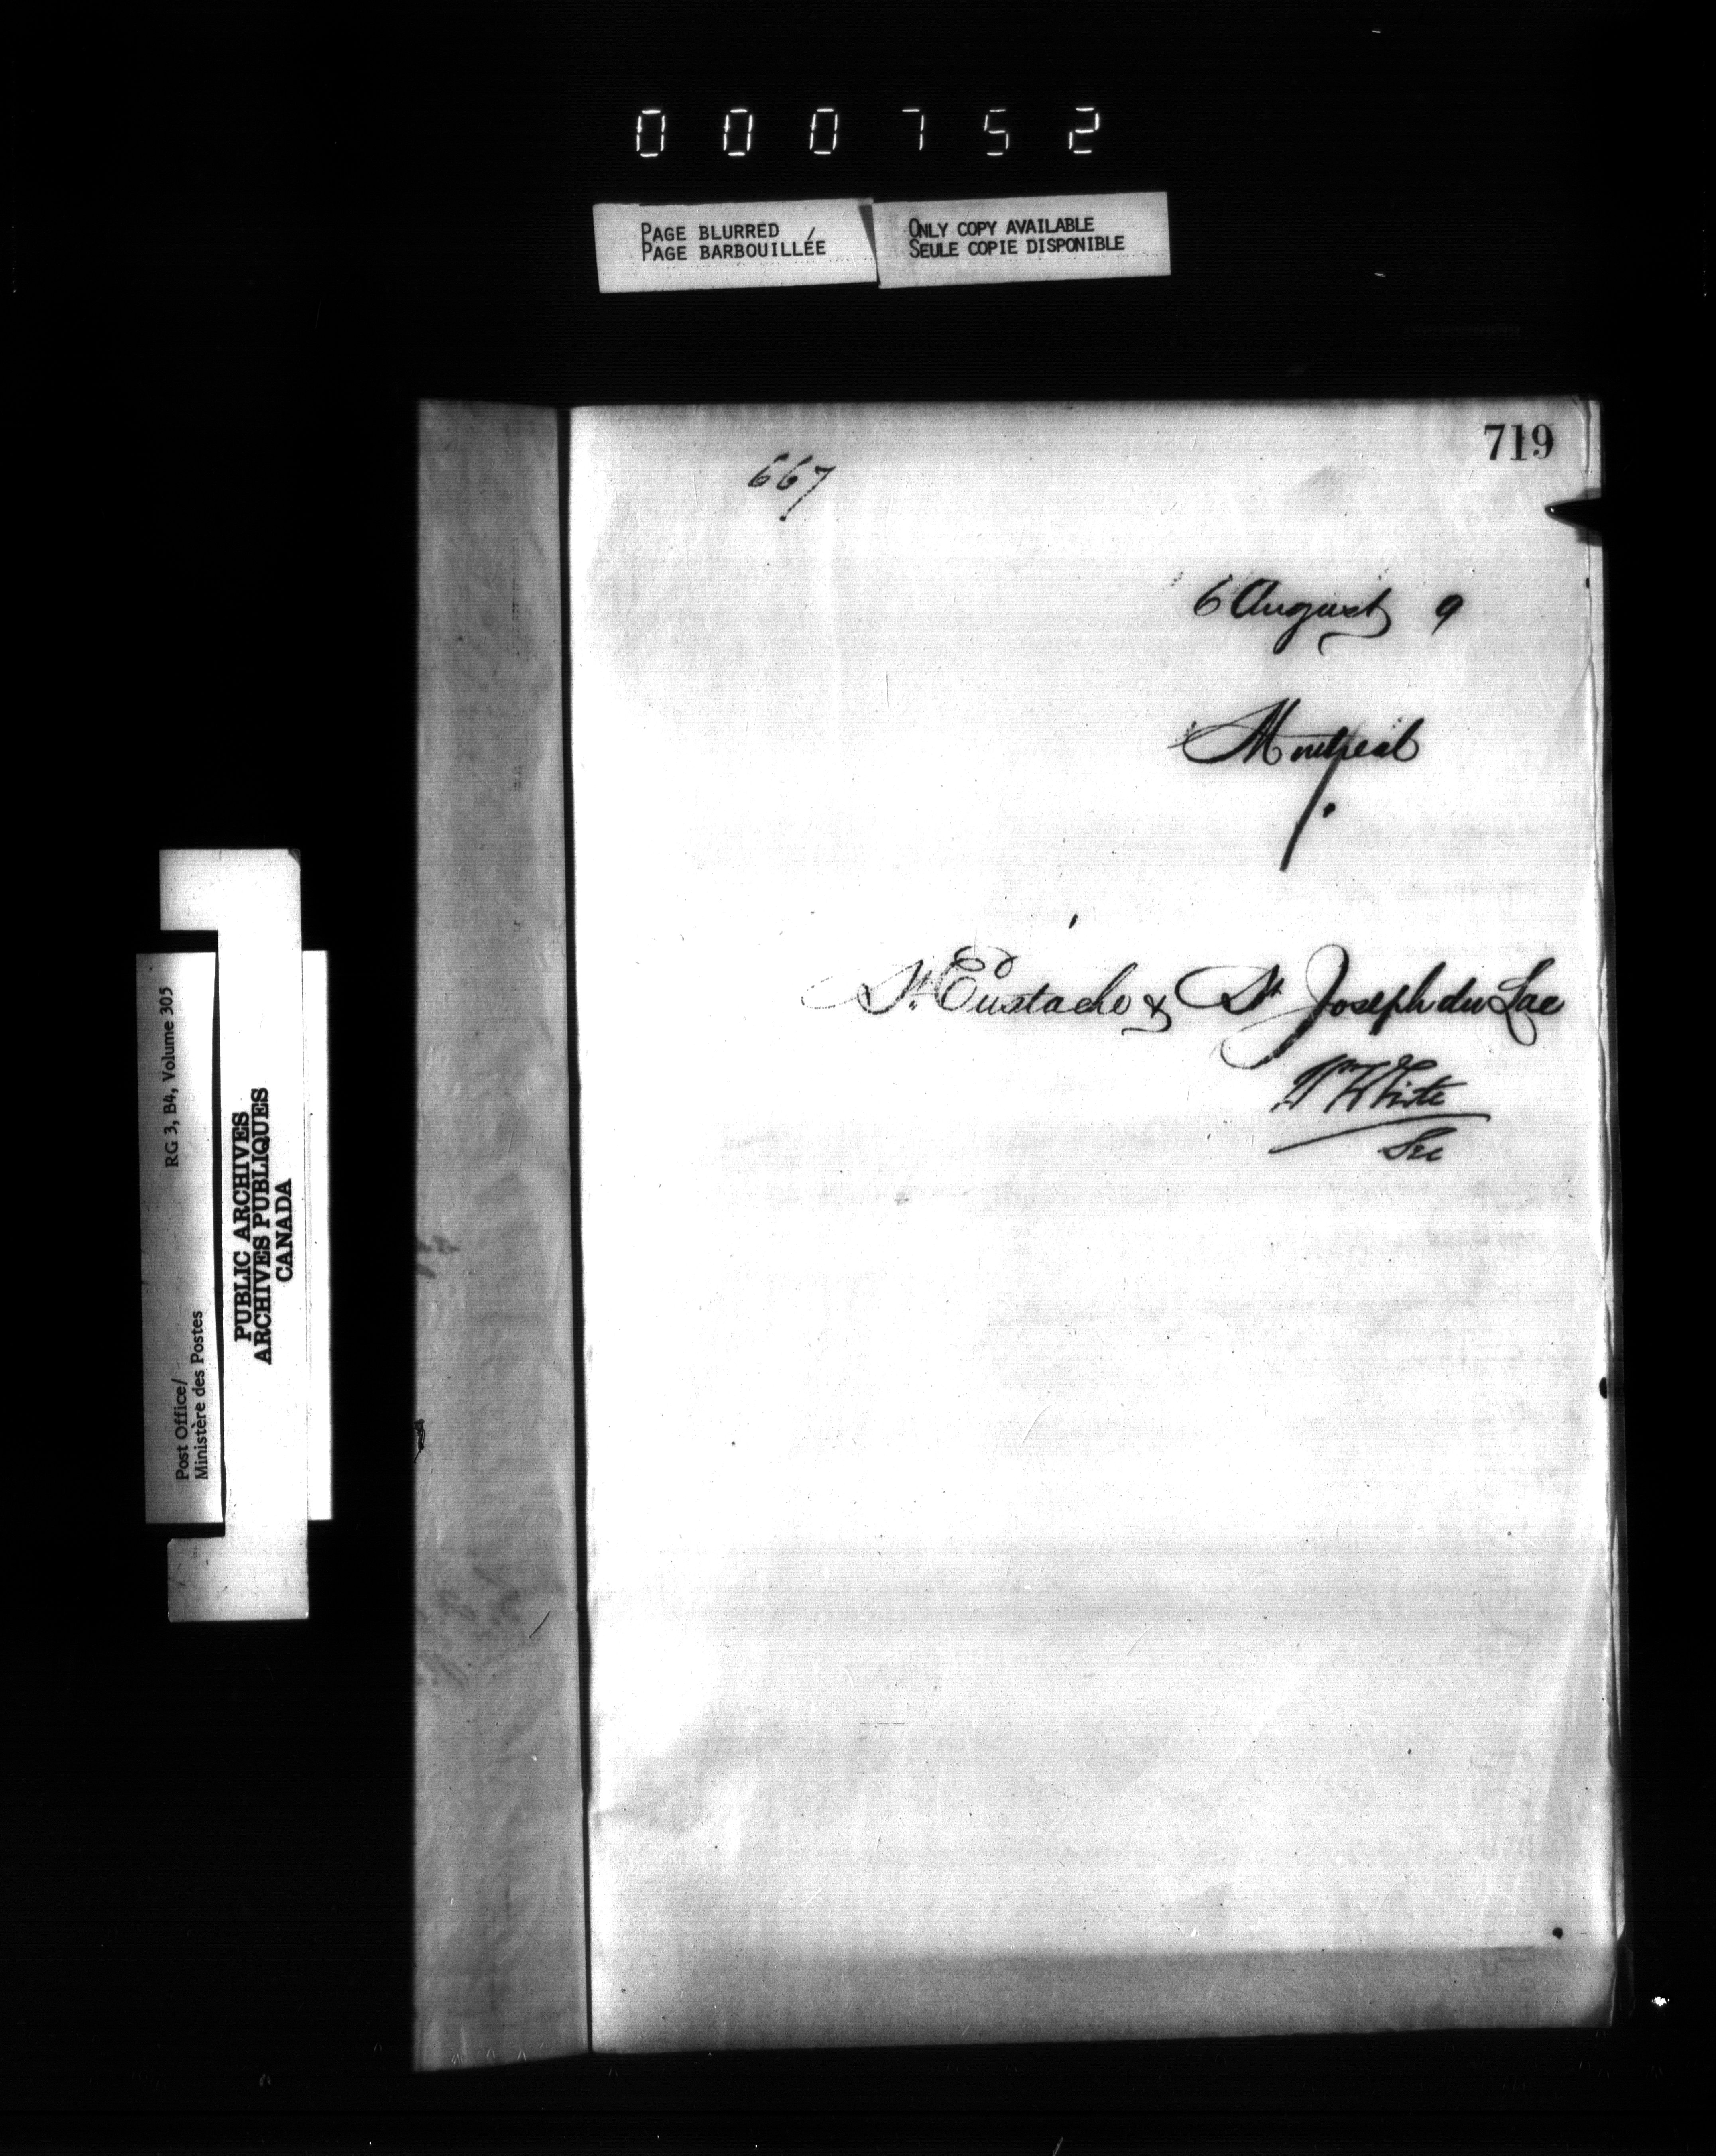 000752
PAGE BLURRED
PAGE BARBOUILLÉE
ONLY COPY AVAILABLE
SEULE COPIE DISPONIBLE
719
667
6 August 9
Montreal
St. Eustache & St Joseph du Lac
Wm White
Sec
RG 3, B4, Volume 305
Post Office/
Ministère des Postes
PUBLIC ARCHIVES
ARCHIVES PUBLIQUES
CANADA